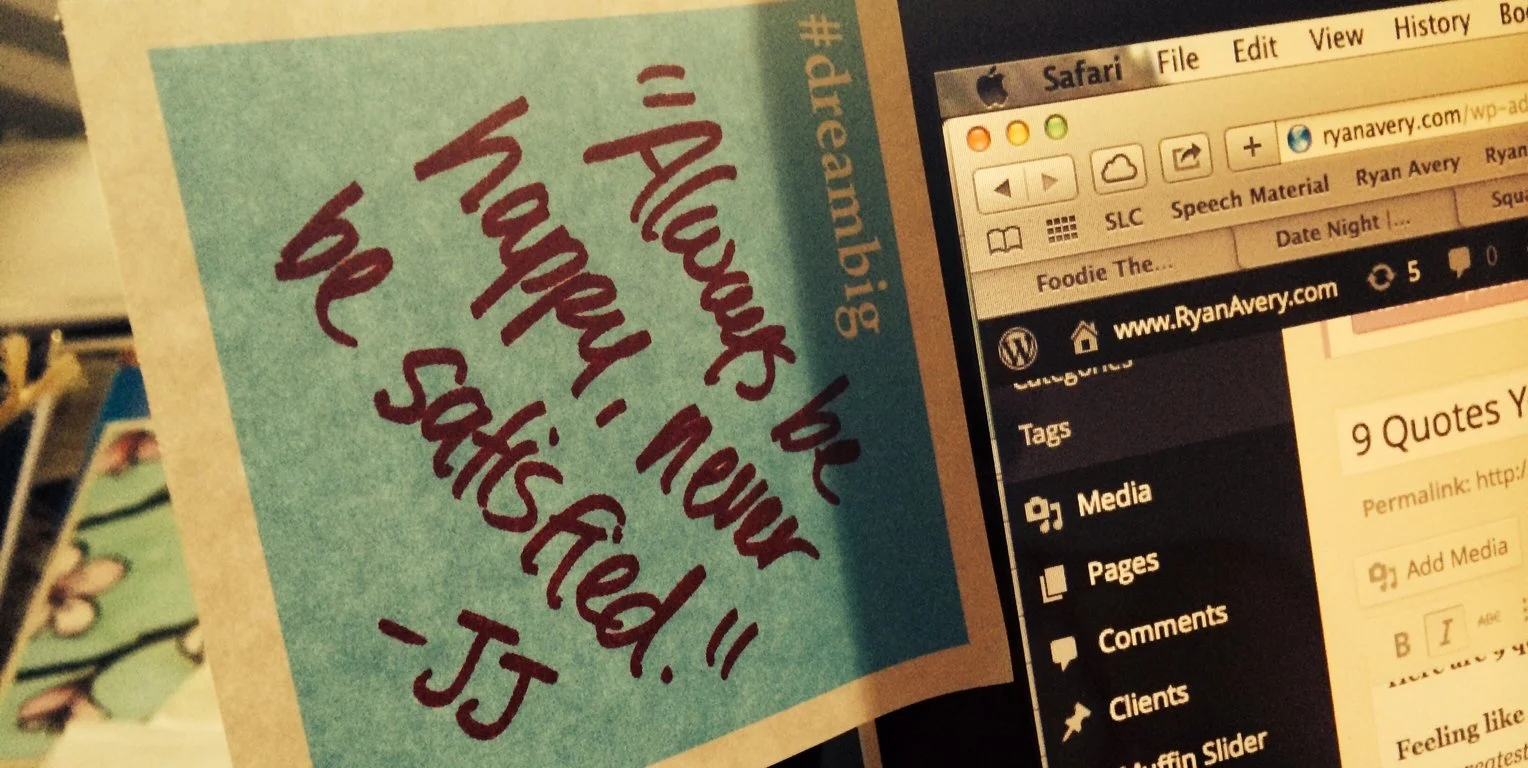 #dreambig
"Always be
happy, never
be satisfied."
-JJ
Safari File Edit View History
ryanavery.com/wp-ad
SLC Speech Material Ryan Avery Ryan
Foodie The... Date Night |... Squa
www.RyanAvery.com 5 0
Categories
Tags
Media
Pages
Comments
Clients
Muffin Slider
9 Quotes Y
Permalink: http:/
Add Media
B I ABC
Feeling like